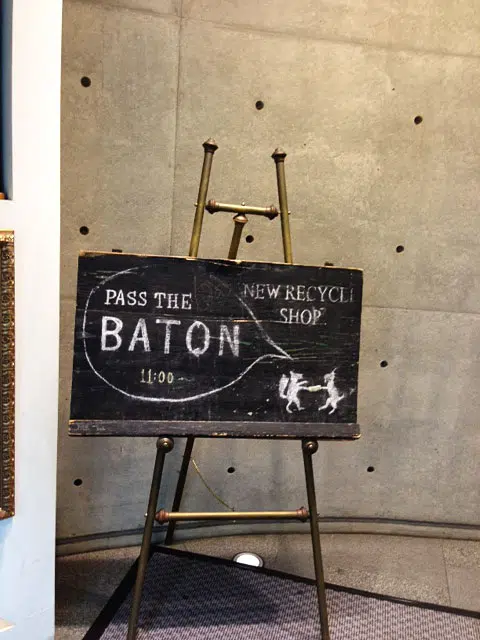 PASS THE
BATON
11:00-
NEW RECYCLE
SHOP.